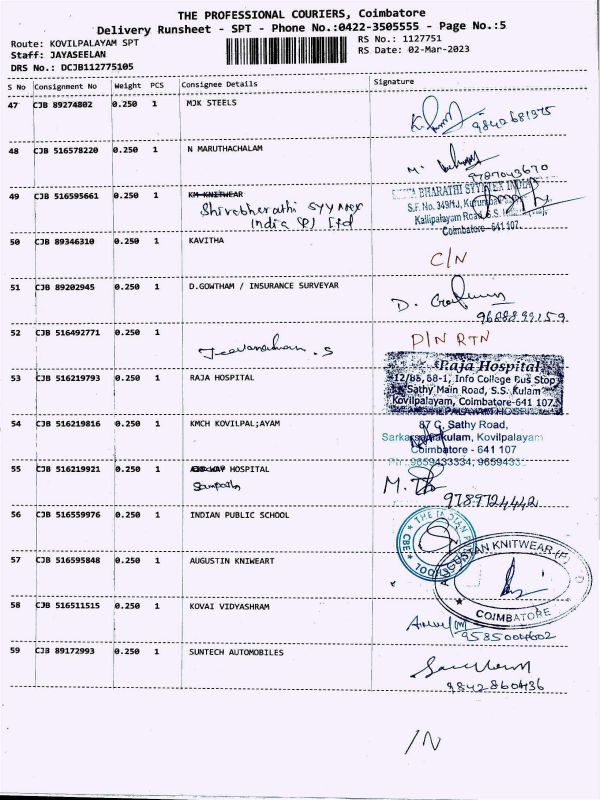 THE PROFESSIONAL COURIERS, Coimbatore
Delivery Runsheet - SPT - Phone No.:0422-3505555 - Page No.:5
Route: KOVILPALAYAM SPT
RS No.: 1127751
Staff: JAYASEELAN
RS Date: 02-Mar-2023
DRS No.: DCJB112775105
S No Consignment No Weight PCS Consignee Details Signature
47 CJB 89274802 0.250 1 MJK STEELS
48 CJB 516578220 0.250 1 N MARUTHACHALAM
9787043670
49 CJB 516595661 0.250 1 KM KNITWEAR
BHARATHI
S.F. No. 349/1J,
Kallipalayam Road, S.S.
Coimbatore-641 107.
India (P) Ltd
50 CJB 89346310 0.250 1 KAVITHA
C/N
51 CJB 89202945 0.250 1 D.GOWTHAM / INSURANCE SURVEYAR
D.
52 CJB 516492771 0.250 1
D/N RTN
53 CJB 516219793 0.250 1 RAJA HOSPITAL
Raja Hospital
Info College Bus Stop
Sathy Main Road, S.S. Kulam
Kovilpalayam, Coimbatore-641 107.
54 CJB 516219816 0.250 1 KMCH KOVILPAL;AYAM
87 C, Sathy Road,
Kovilpalayam
Coimbatore - 641 107
Ph: 9659433334, 9659433
55 CJB 516219921 0.250 1 HOSPITAL
Sampath
M.
9789724442
56 CJB 516559976 0.250 1 INDIAN PUBLIC SCHOOL
THE INDIAN SCHOOL CBE
57 CJB 516595848 0.250 1 AUGUSTIN KNIWEART
KNITWEAR (P)
COIMBATORE
58 CJB 516511515 0.250 1 KOVAI VIDYASHRAM
9585004602
59 CJB 89172993 0.250 1 SUNTECH AUTOMOBILES
9842860436
/N